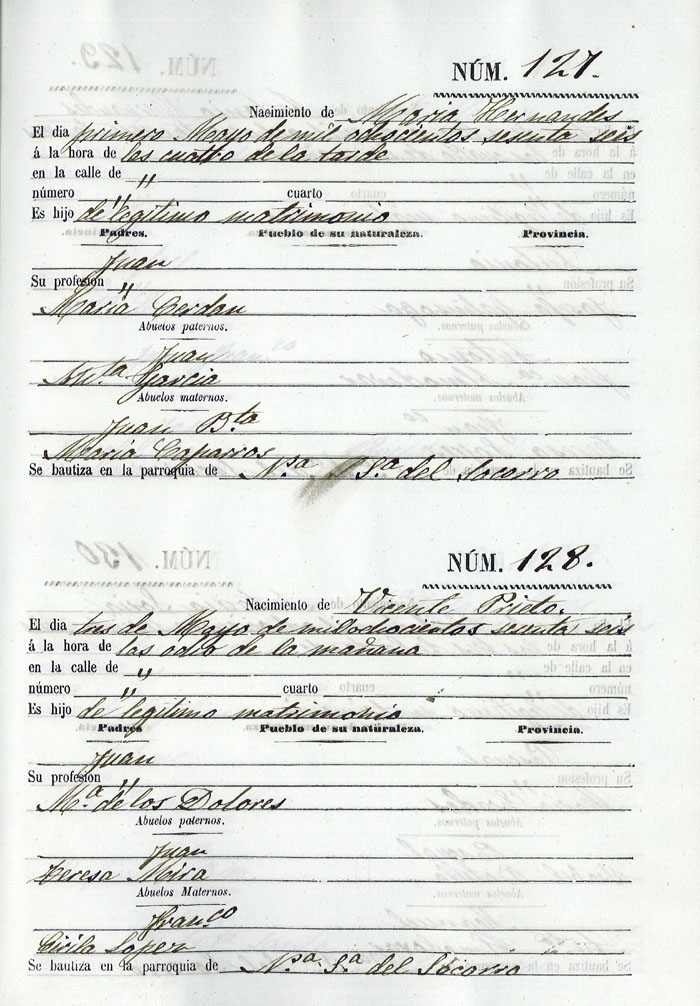 NÚM. 127.
Nacimiento de Maria Hernandes
El dia primero Mayo de mil ochocientos sesenta seis
á la hora de las cuatro de la tarde
en la calle de "
número " cuarto
Es hijo de legitimo matrimonio
Padres. Pueblo de su naturaleza. Provincia.
Juan
Su profesion "
Maria Cerdan
Abuelos paternos.
Juan
Garcia
Abuelos maternos.
Juan Bta
Maria Caparros
Se bautiza en la parroquia de Nª Sª del Socorro
NÚM. 128.
Nacimiento de Vicente Prieto.
El dia tres de Mayo de mil ochocientos sesenta seis
á la hora de las ocho de la mañana
en la calle de "
número " cuarto
Es hijo de legitimo matrimonio
Padres Pueblo de su naturaleza. Provincia.
Juan
Su profesion "
Mª de los Dolores
Abuelos paternos.
Juan
Teresa Mira
Abuelos Maternos.
Franco
Lopez
Se bautiza en la parroquia de Nª Sª del Socorro